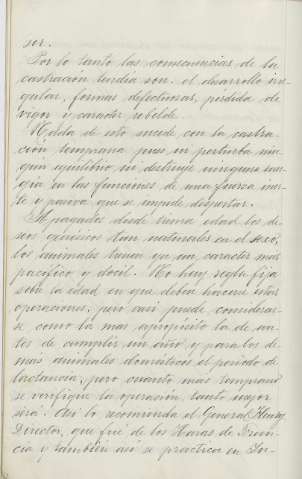 sor.
Por lo tanto las consecuencias de la
castración tardía son: el desarrollo irre-
gular, formas defectuosas, pérdida de
vigor y caracter rebelde.
Nada de esto sucede con la castra-
ción temprana pues ni perturba nin-
gún equilibrio, ni destruye ninguna ener-
gía en las funciones de una fuerza iner-
te y pasiva que se impide despertar.
Apagados desde tierna edad los de-
seos genésicos tan naturales en el sexo,
los animales toman ya un caracter mas
pacífico y docil. No hay regla fija
sobre la edad en que deben hacerse estas
operaciones; pero casi puede considerar-
se como la mas apropósito la de an-
tes de cumplir un año y para los de-
más animales domésticos el período de
lactancia; pero cuanto más temprano
se verifique la operación, tanto mejor
será. Así lo recomienda el General
Director, que fué de los Haras de
cia y también así se practica en In-